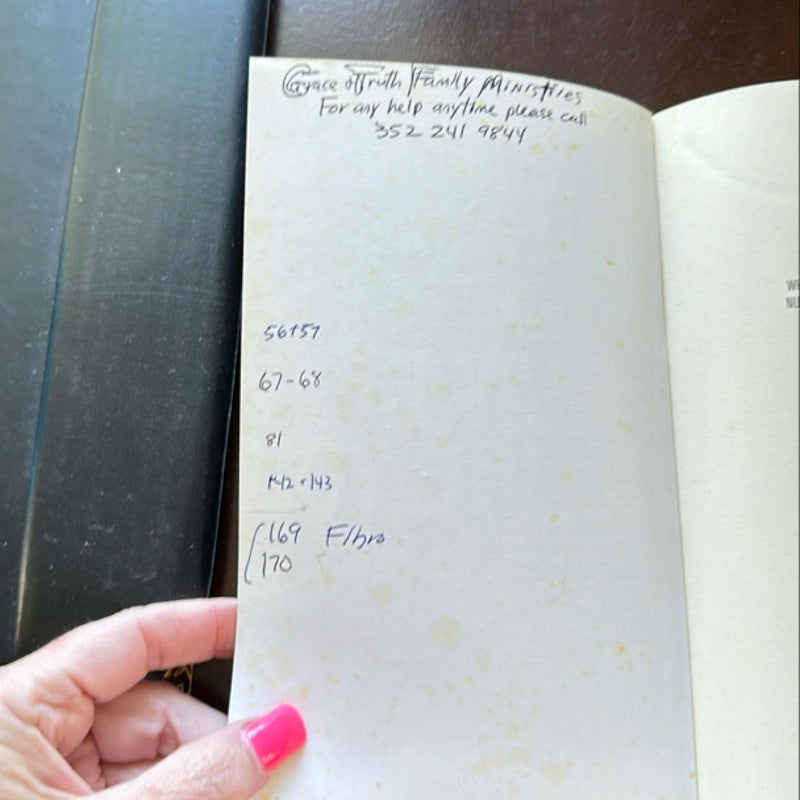 Grace of Truth Family Ministries
For any help anytime please call
352 241 9844
56+57
67-68
81
142+143
169 F/bro
170